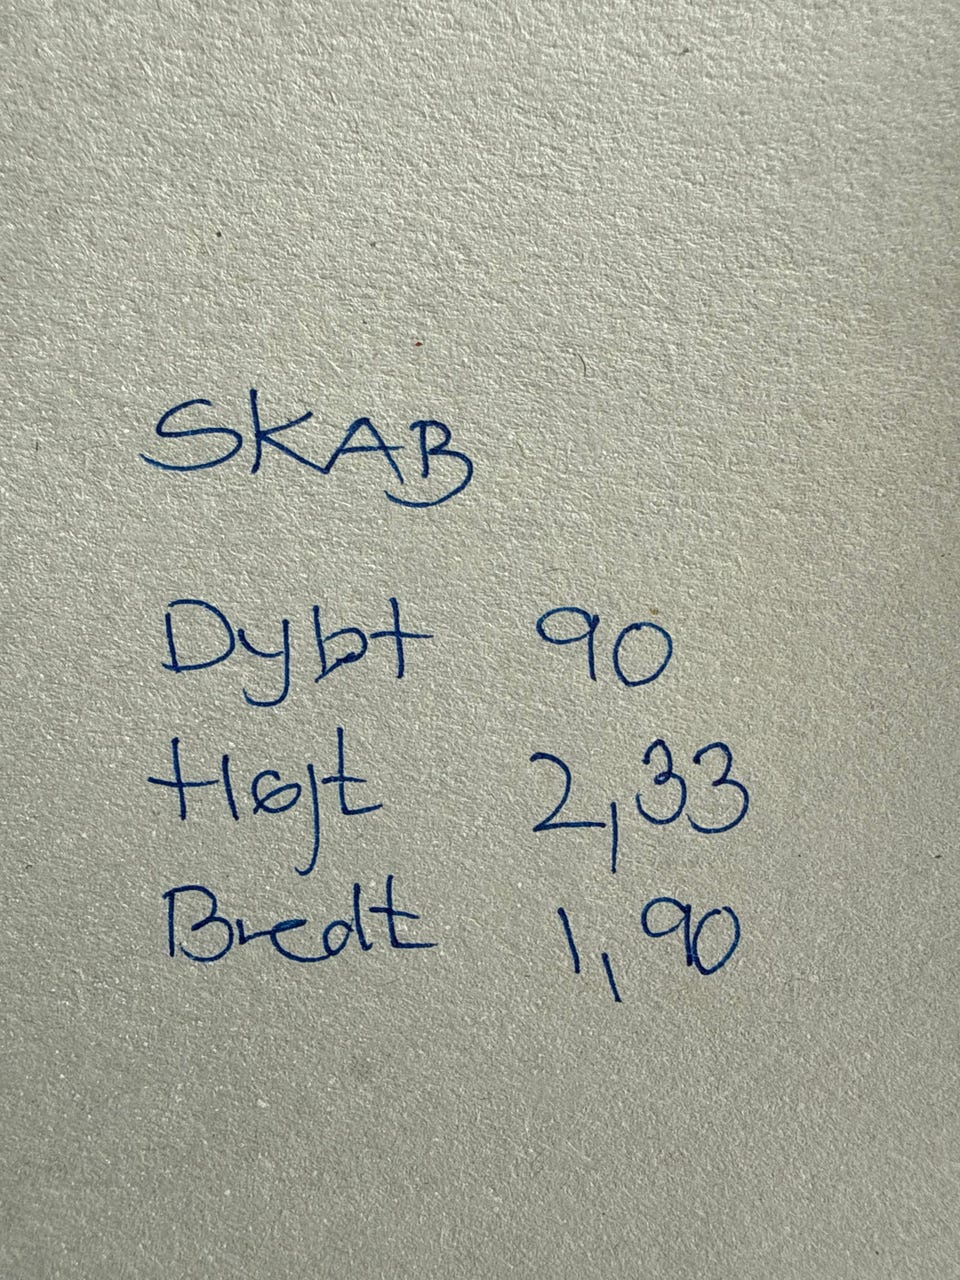 SKAB
Dybt 90
Højt 2,33
Bredt 1,90